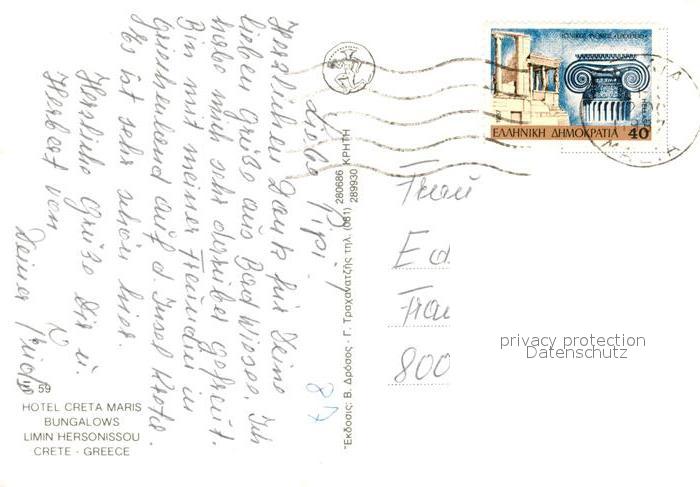 Liebe Pipi!
Herzlichen Dank für Deine
lieben Grüße aus Bad Wiessee. Ich
habe mich sehr darüber gefreut.
Bin mit meiner Freundin in
Griechenland auf d. Insel Kreta.
Es ist sehr schön hier.
Herzliche Grüße Dir u.
Herbert von
Deiner
87
59
HOTEL CRETA MARIS
BUNGALOWS
LIMIN HERSONISSOU
CRETE - GREECE
Ἐκδοσις: Β. Δρόσος - Γ. Τραχανατζής τηλ. (081) 280686
289930 ΚΡΗΤΗ
ΕΛΛΗΝΙΚΗ ΔΗΜΟΚΡΑΤΙΑ 40
MALIA
Frau
Ed
Frau
800
privacy protection
Datenschutz